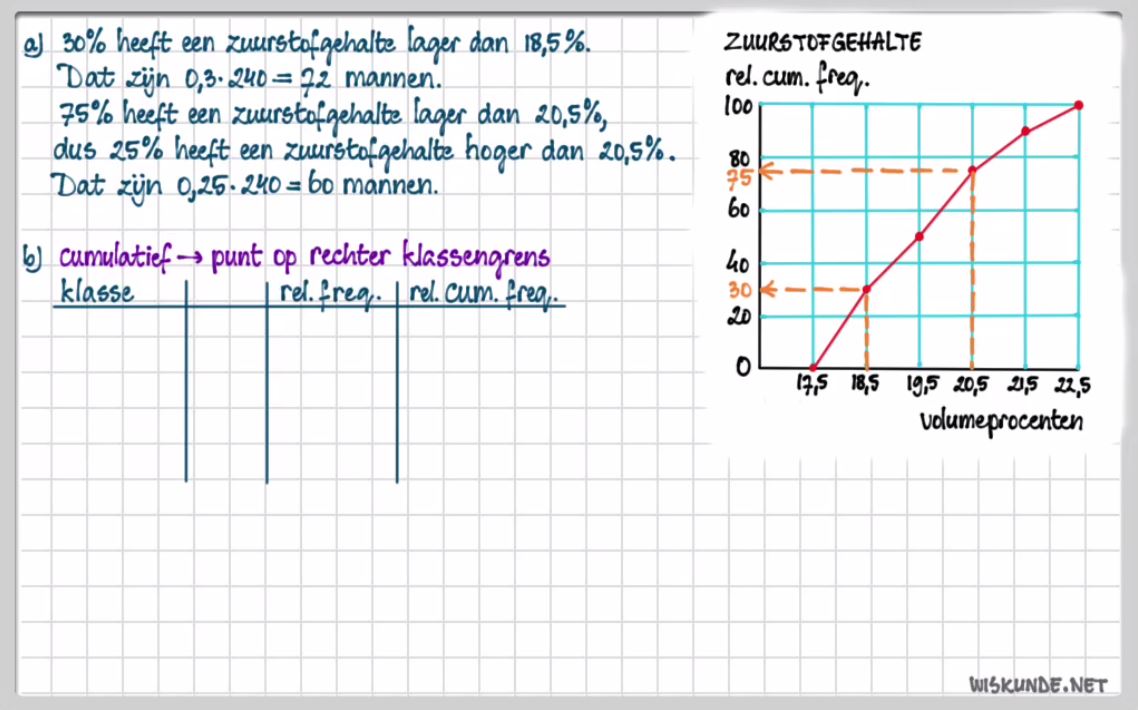 a) 30% heeft een zuurstofgehalte lager dan 18,5%.
Dat zijn 0,3·240 = 72 mannen.
75% heeft een zuurstofgehalte lager dan 20,5%,
dus 25% heeft een zuurstofgehalte hoger dan 20,5%.
Dat zijn 0,25·240 = 60 mannen.
b) cumulatief → punt op rechter klassengrens
klasse rel. freq. rel. cum. freq.
ZUURSTOFGEHALTE
rel. cum. freq.
100
80
75
60
40
30
20
0
17,5 18,5 19,5 20,5 21,5 22,5
volumeprocenten
WISKUNDE.NET